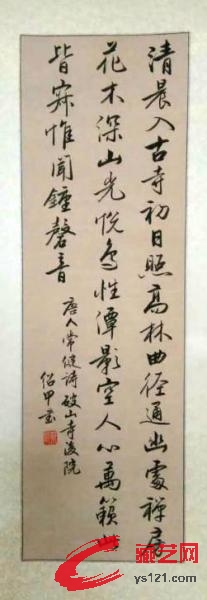 清晨入古寺初日照高林曲径通幽處禅房
花木深山光悦鸟性潭影空人心萬籟此
皆寂惟聞鐘磬音
唐人常健诗破山寺後院
绍甲书
藏艺网
ys121.com